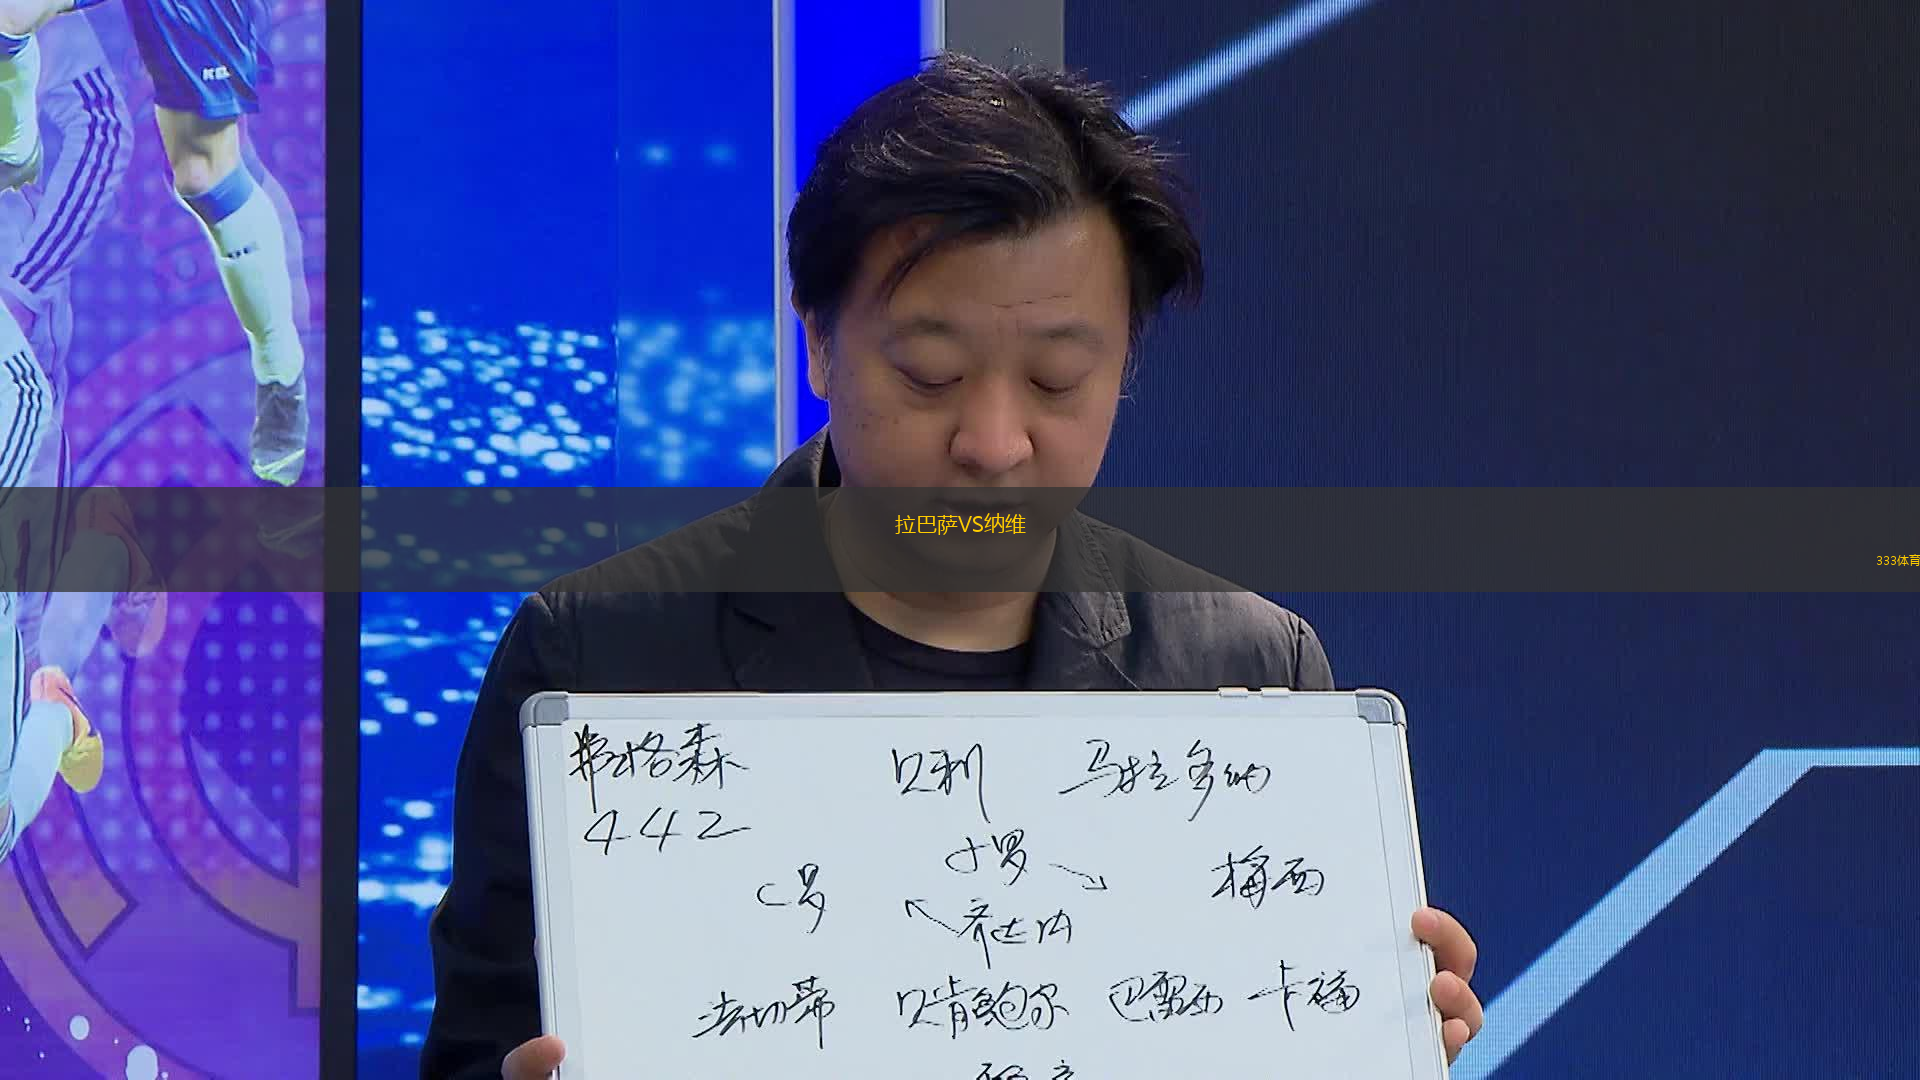 拉巴萨VS纳维
333体育
弗格森 贝利 马拉多纳
442
小罗
C罗 梅西
齐达内
法切蒂 贝肯鲍尔 巴雷西 卡福